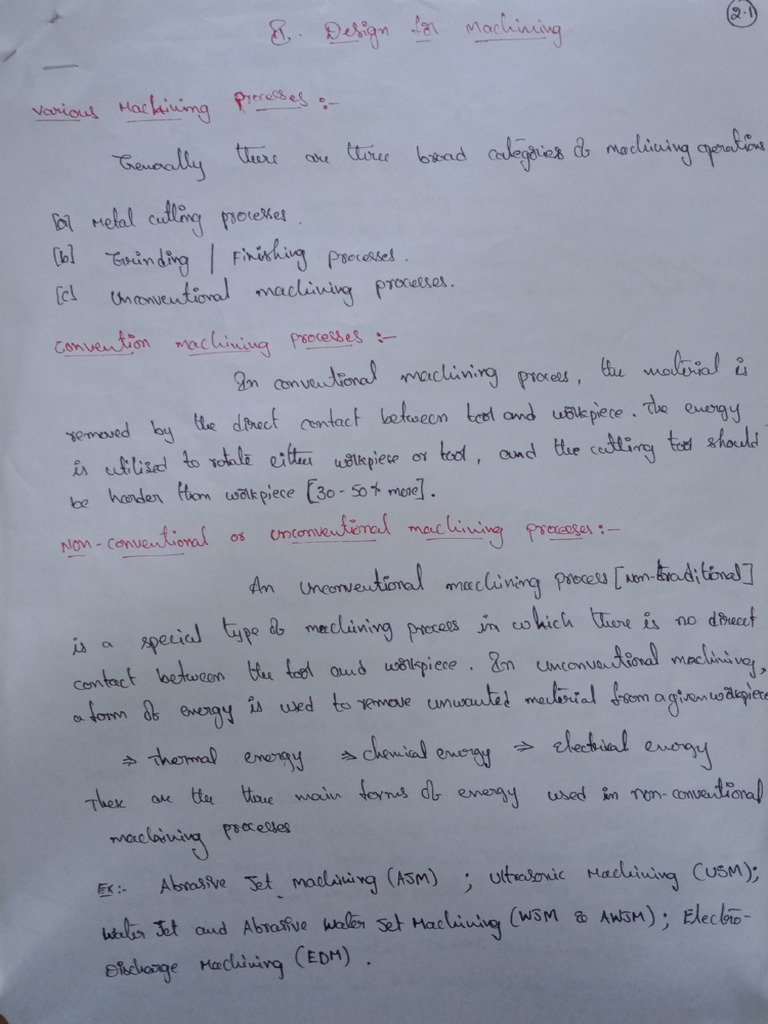 2.1
II. Design for Machining
Various Machining Processes :-
Generally there are three broad categories of machining operations
[a] Metal cutting processes.
[b] Grinding / Finishing processes.
[c] Unconventional machining processes.
Convention machining processes :-
In conventional machining process, the material is
removed by the direct contact between tool and workpiece. The energy
is utilised to rotate either workpiece or tool, and the cutting tool should
be harder than workpiece [30-50% more].
Non-conventional or unconventional machining processes :-
An unconventional machining process [non-traditional]
is a special type of machining process in which there is no direct
contact between the tool and workpiece. In unconventional machining,
a form of energy is used to remove unwanted material from a given workpiece
⇒ Thermal energy ⇒ chemical energy ⇒ Electrical energy
These are the three main forms of energy used in non-conventional
machining processes
Ex:- Abrasive Jet machining (AJM) ; Ultrasonic Machining (USM);
Water Jet and Abrasive Water Jet Machining (WJM & AWJM) ; Electro-
Discharge Machining (EDM) .